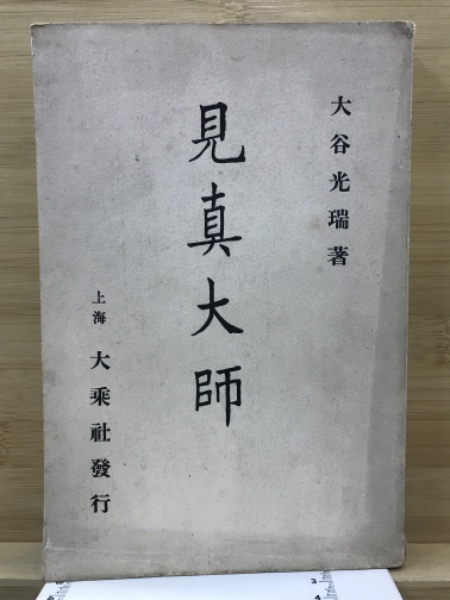 大谷光瑞著
見真大師
上海 大乘社發行
3
4